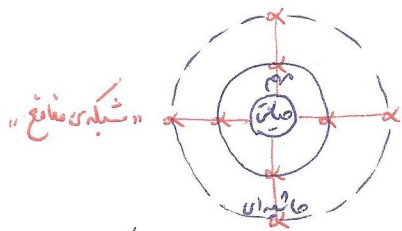 «شبکه‌ی منافع»
مهم
حیاتی
حاشیه‌ای